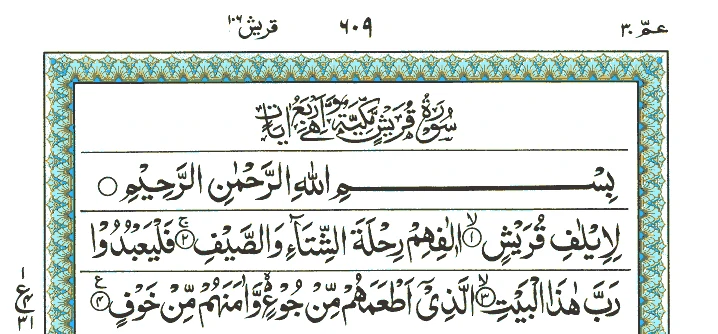 عمّ ٣٠ ٦٠٩ قريش ١٠٦
سُورَةُ قُرَيْشٍ مَكِّيَّةٌ وَهِيَ أَرْبَعُ اٰيَاتٍ
بِسْمِ اللهِ الرَّحْمٰنِ الرَّحِيْمِ ○
لِاِيْلٰفِ قُرَيْشٍ ۙ﴿١﴾ اٖلٰفِهِمْ رِحْلَةَ الشِّتَآءِ وَالصَّيْفِ ۚ﴿٢﴾ فَلْيَعْبُدُوْا
رَبَّ هٰذَا الْبَيْتِ ۙ﴿٣﴾ الَّذِىْٓ اَطْعَمَهُمْ مِّنْ جُوْعٍ ۙ وَّاٰمَنَهُمْ مِّنْ خَوْفٍ ﴿٤﴾ ع
١
ع
٤
٣١